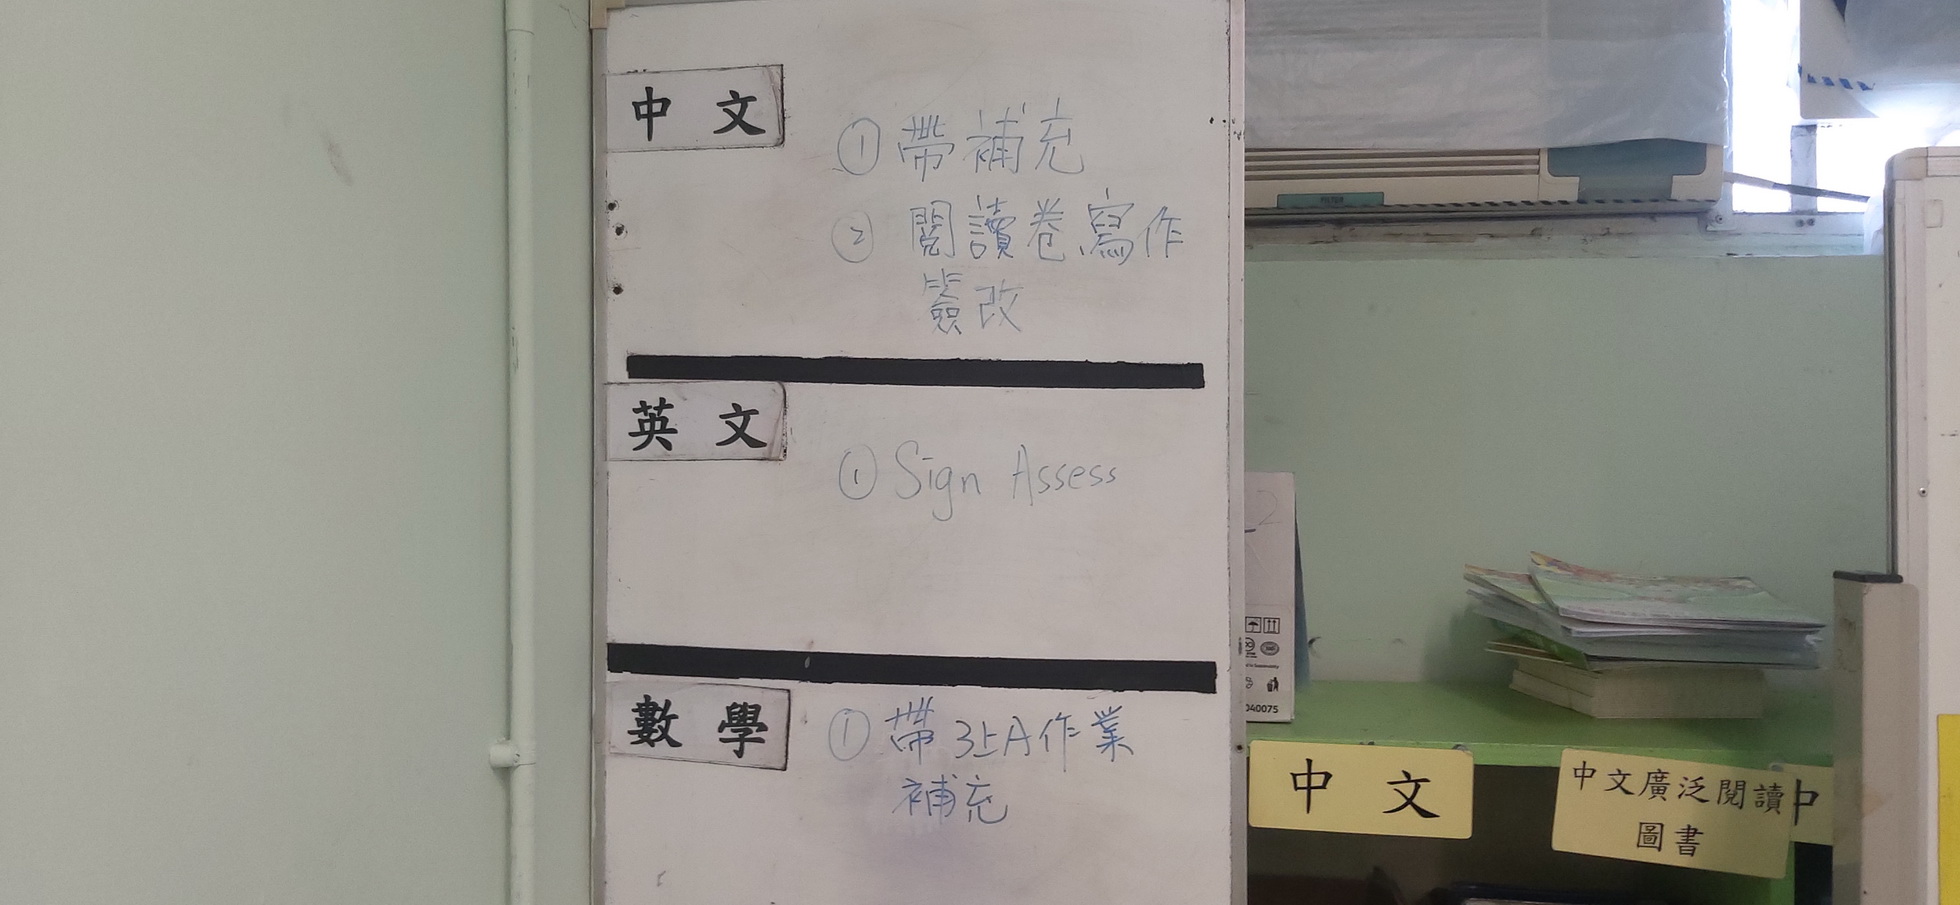 中文
① 帶補充
② 閱讀卷寫作
簽改
英文
① Sign Assess
數學
① 帶 3上A作業
補充
FILTER
2
040075
中文
中文廣泛閱讀
圖書
中